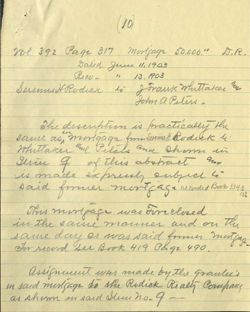 10
Vol 392 Page 317 Mortgage 50,000.00 D.R.
Dated June 11, 1903
Rec. " 13, 1903
Serenus H. Rodick to J. Frank Whittaker and
John A. Peters.
The description is practically the
same as, Mortgage from Rodick to
Whittaker and Peters and shown in
Item 9 of this abstract and
is made expressly subject to
said former mortgage recorded Book
This mortgage was Foreclosed
in the same manner and on the
same day as was said former mortgage
For record see Book 419 Page 490.
Assignment was made by the grantee's
in said mortgage to the Rodick Realty Company
as shown in said Item No. 9 —